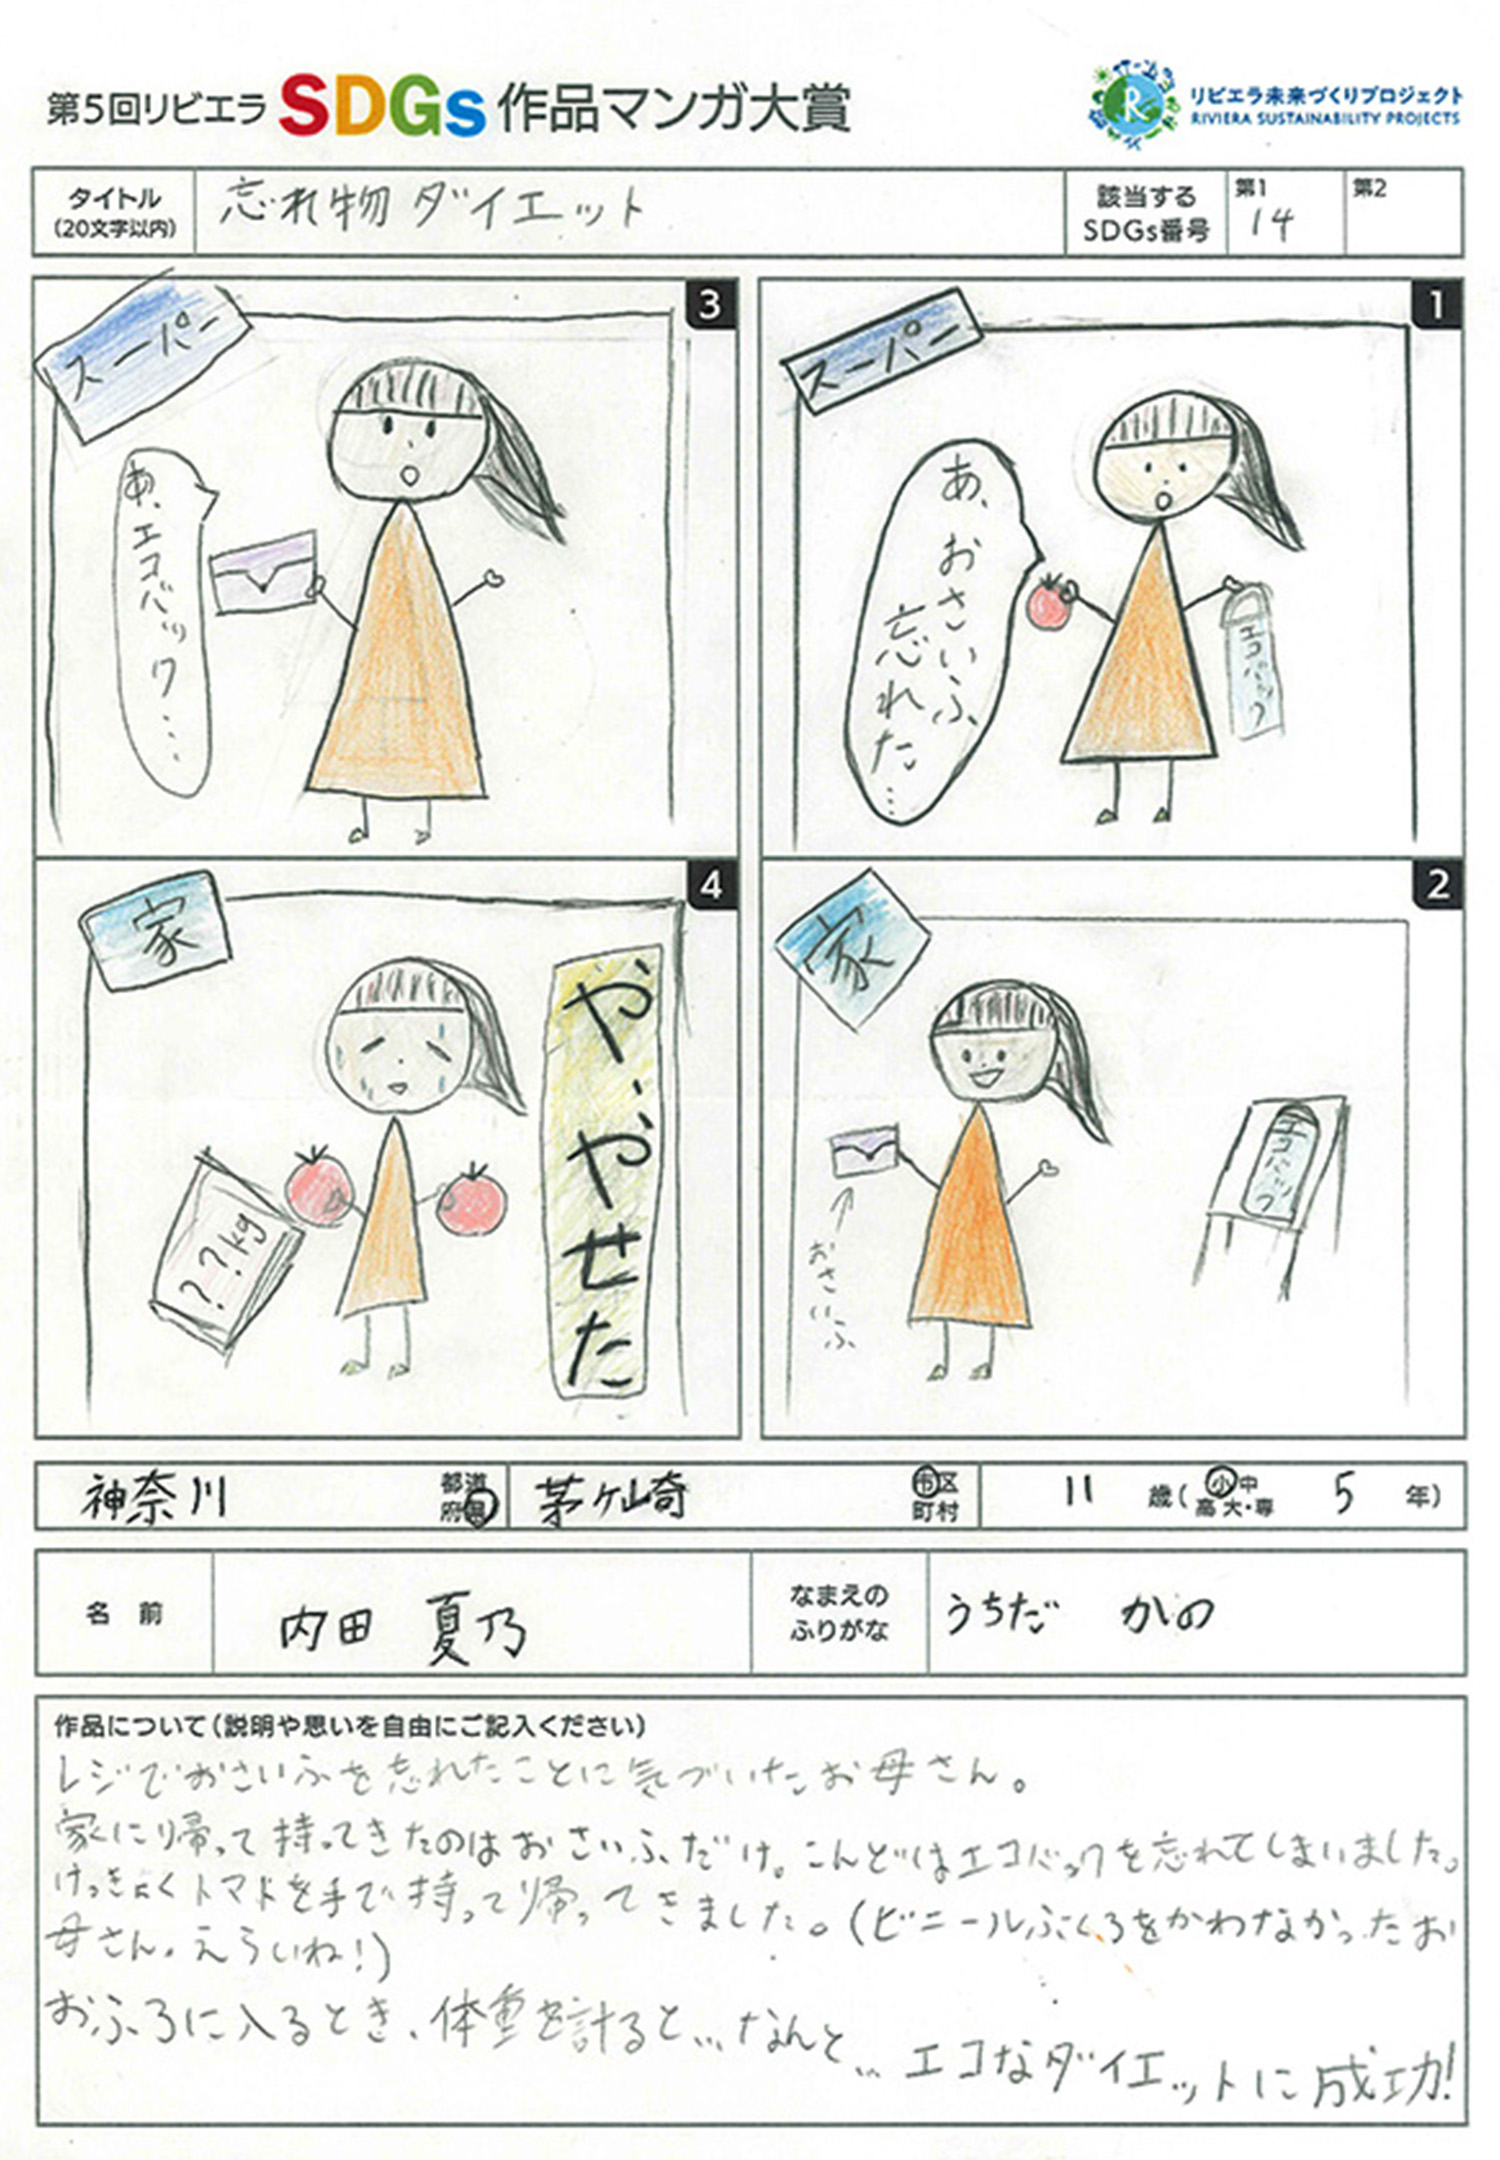 第5回リビエラ SDGs 作品マンガ大賞
リビエラ未来づくりプロジェクト
RIVIERA SUSTAINABILITY PROJECTS
タイトル
(20文字以内)
忘れ物ダイエット
該当する
SDGs番号
第1
14
第2
1
スーパー
あ、おさいふ
忘れた…
エコバック
2
家
おさいふ
エコバック
3
スーパー
あ、エコバック…
4
家
や、やせた
??kg
神奈川
都道
府県
茅ヶ崎
市区
町村
11 歳(小・中 高 大・専 5 年)
名 前
内田 夏乃
なまえの
ふりがな
うちだ かの
作品について(説明や思いを自由にご記入ください)
レジでおさいふを忘れたことに気づいたお母さん。
家に帰って持ってきたのはおさいふだけ。こんどはエコバックを忘れてしまいました。
けっきょくトマトを手で持って帰ってきました。(ビニールぶくろをかわなかったお
母さん。えらいね!)
おふろに入るとき、体重を計ると…なんと…エコなダイエットに成功!